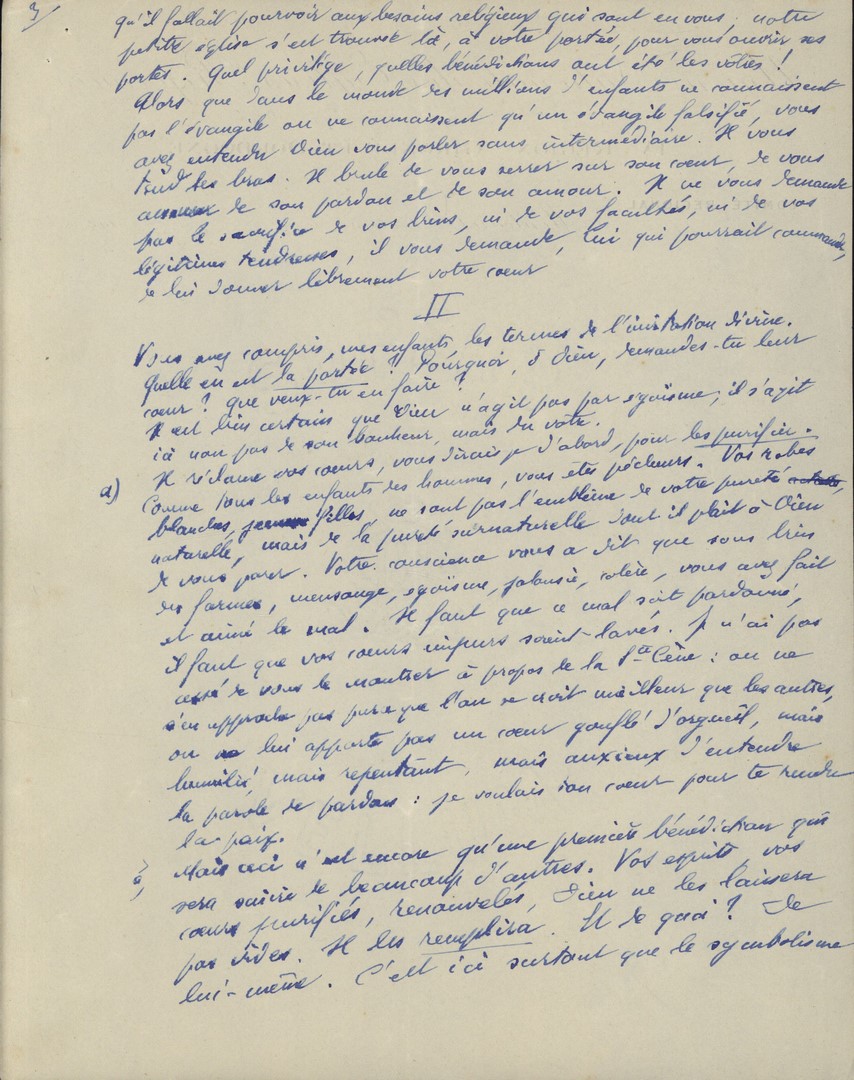 3/
qu'il fallait pourvoir aux besoins religieux qui sont en vous, notre
petite église s'est trouvée là, à votre portée, pour vous ouvrir ses
portes. Quel privilège, quelles bénédictions ont été les vôtres !
Alors que dans le monde des millions d'enfants ne connaissent
pas l'évangile ou ne connaissent qu'un évangile falsifié, vous
avez entendu Dieu vous parler sans intermédiaire. Il vous
tend les bras. Il brule de vous serrer sur son cœur, de vous
de son pardon et de son amour. Il ne vous demande
pas le sacrifice de vos biens, ni de vos facultés, ni de vos
légitimes tendresses, il vous demande, lui qui pourrait commander,
de lui donner librement votre cœur
II
Vous avez compris, mes enfants les termes de l'invitation divine.
Quelle en est la portée ? Pourquoi, ô Dieu, demandes-tu leur
cœur ? que veux-tu en faire ?
Il est bien certain que Dieu n'agit pas par egoïsme, il s'agit
ici non pas de son bonheur, mais du votre.
Il réclame vos cœurs, vous dirais-je d'abord, pour les purifier.
a) Comme tous les enfants des hommes, vous êtes pécheurs. Vos robes
blanches, jeunes filles, ne sont pas l'emblème de votre pureté
naturelle, mais de la pureté surnaturelle dont il plaît à Dieu
de vous parer. Votre conscience vous a dit que sous bien
des formes, mensonge, egoïsme, jalousie, colère, vous avez fait
et aimé le mal. Il faut que ce mal soit pardonné,
il faut que vos cœurs impurs soient lavés. Je n'ai pas
cessé de vous le montrer à propos de la Ste Cène : on ne
s'en approche pas parce que l'on se croit meilleur que les autres,
on ne lui apporte pas un cœur gonflé d'orgueil, mais
humilié mais repentant, mais anxieux d'entendre
la parole de pardon : je voulais ton cœur pour te rendre
la paix.
Mais ceci n'est encore qu'une première bénédiction qui
sera suivie de beaucoup d'autres. Vos esprits, vos
cœurs purifiés, renouvelés, Dieu ne les laissera
pas vides. Il les remplira. Et de quoi ? De
lui-même. C'est ici surtout que le symbolisme